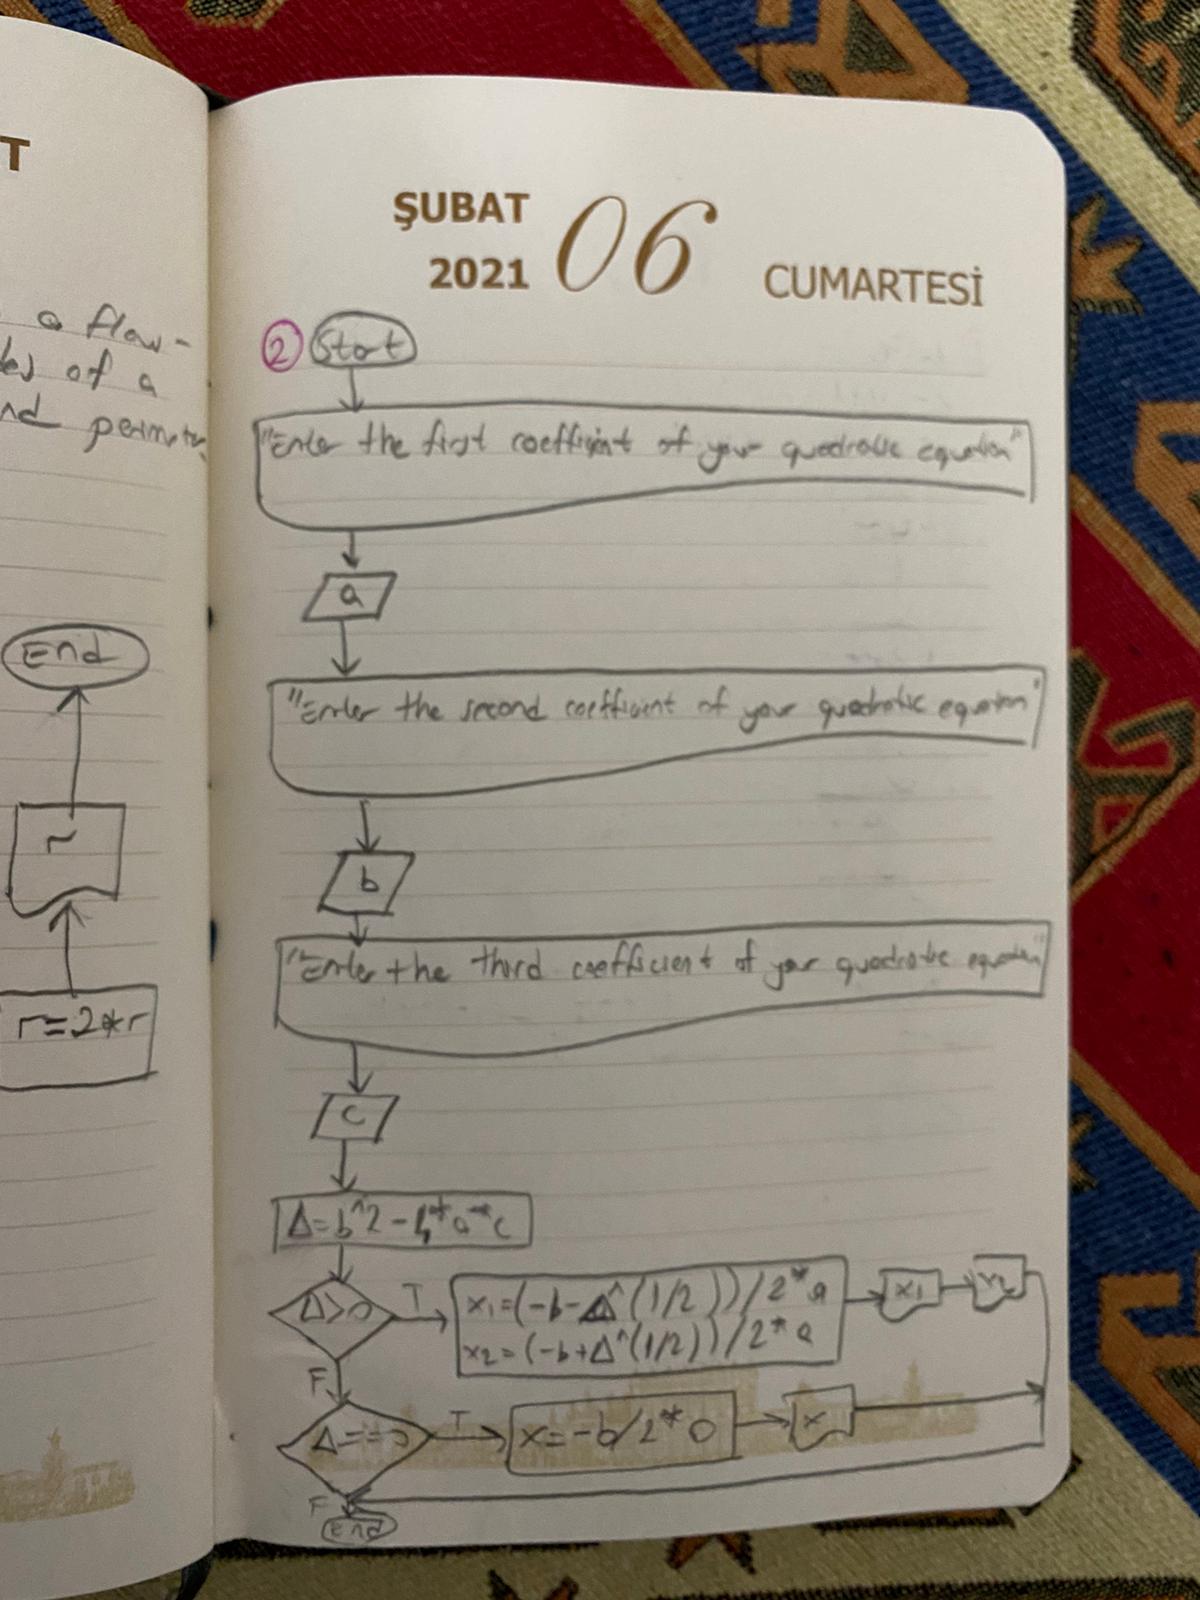 T
a flow-
of a
nd
End
r
r=2*r
ŞUBAT
2021
06
CUMARTESİ
2
Start
"Enter the first coefficient of your quadratic equation"
a
"Enter the second coefficient of your quadratic equation"
b
"Enter the third coefficient of your quadratic equation"
c
Δ=b^2-4*a*c
Δ>0
T
x1=(-b-Δ^(1/2))/2*a
x2=(-b+Δ^(1/2))/2*a
x1
x2
F
Δ==0
T
x=-b/2*a
x
F
End